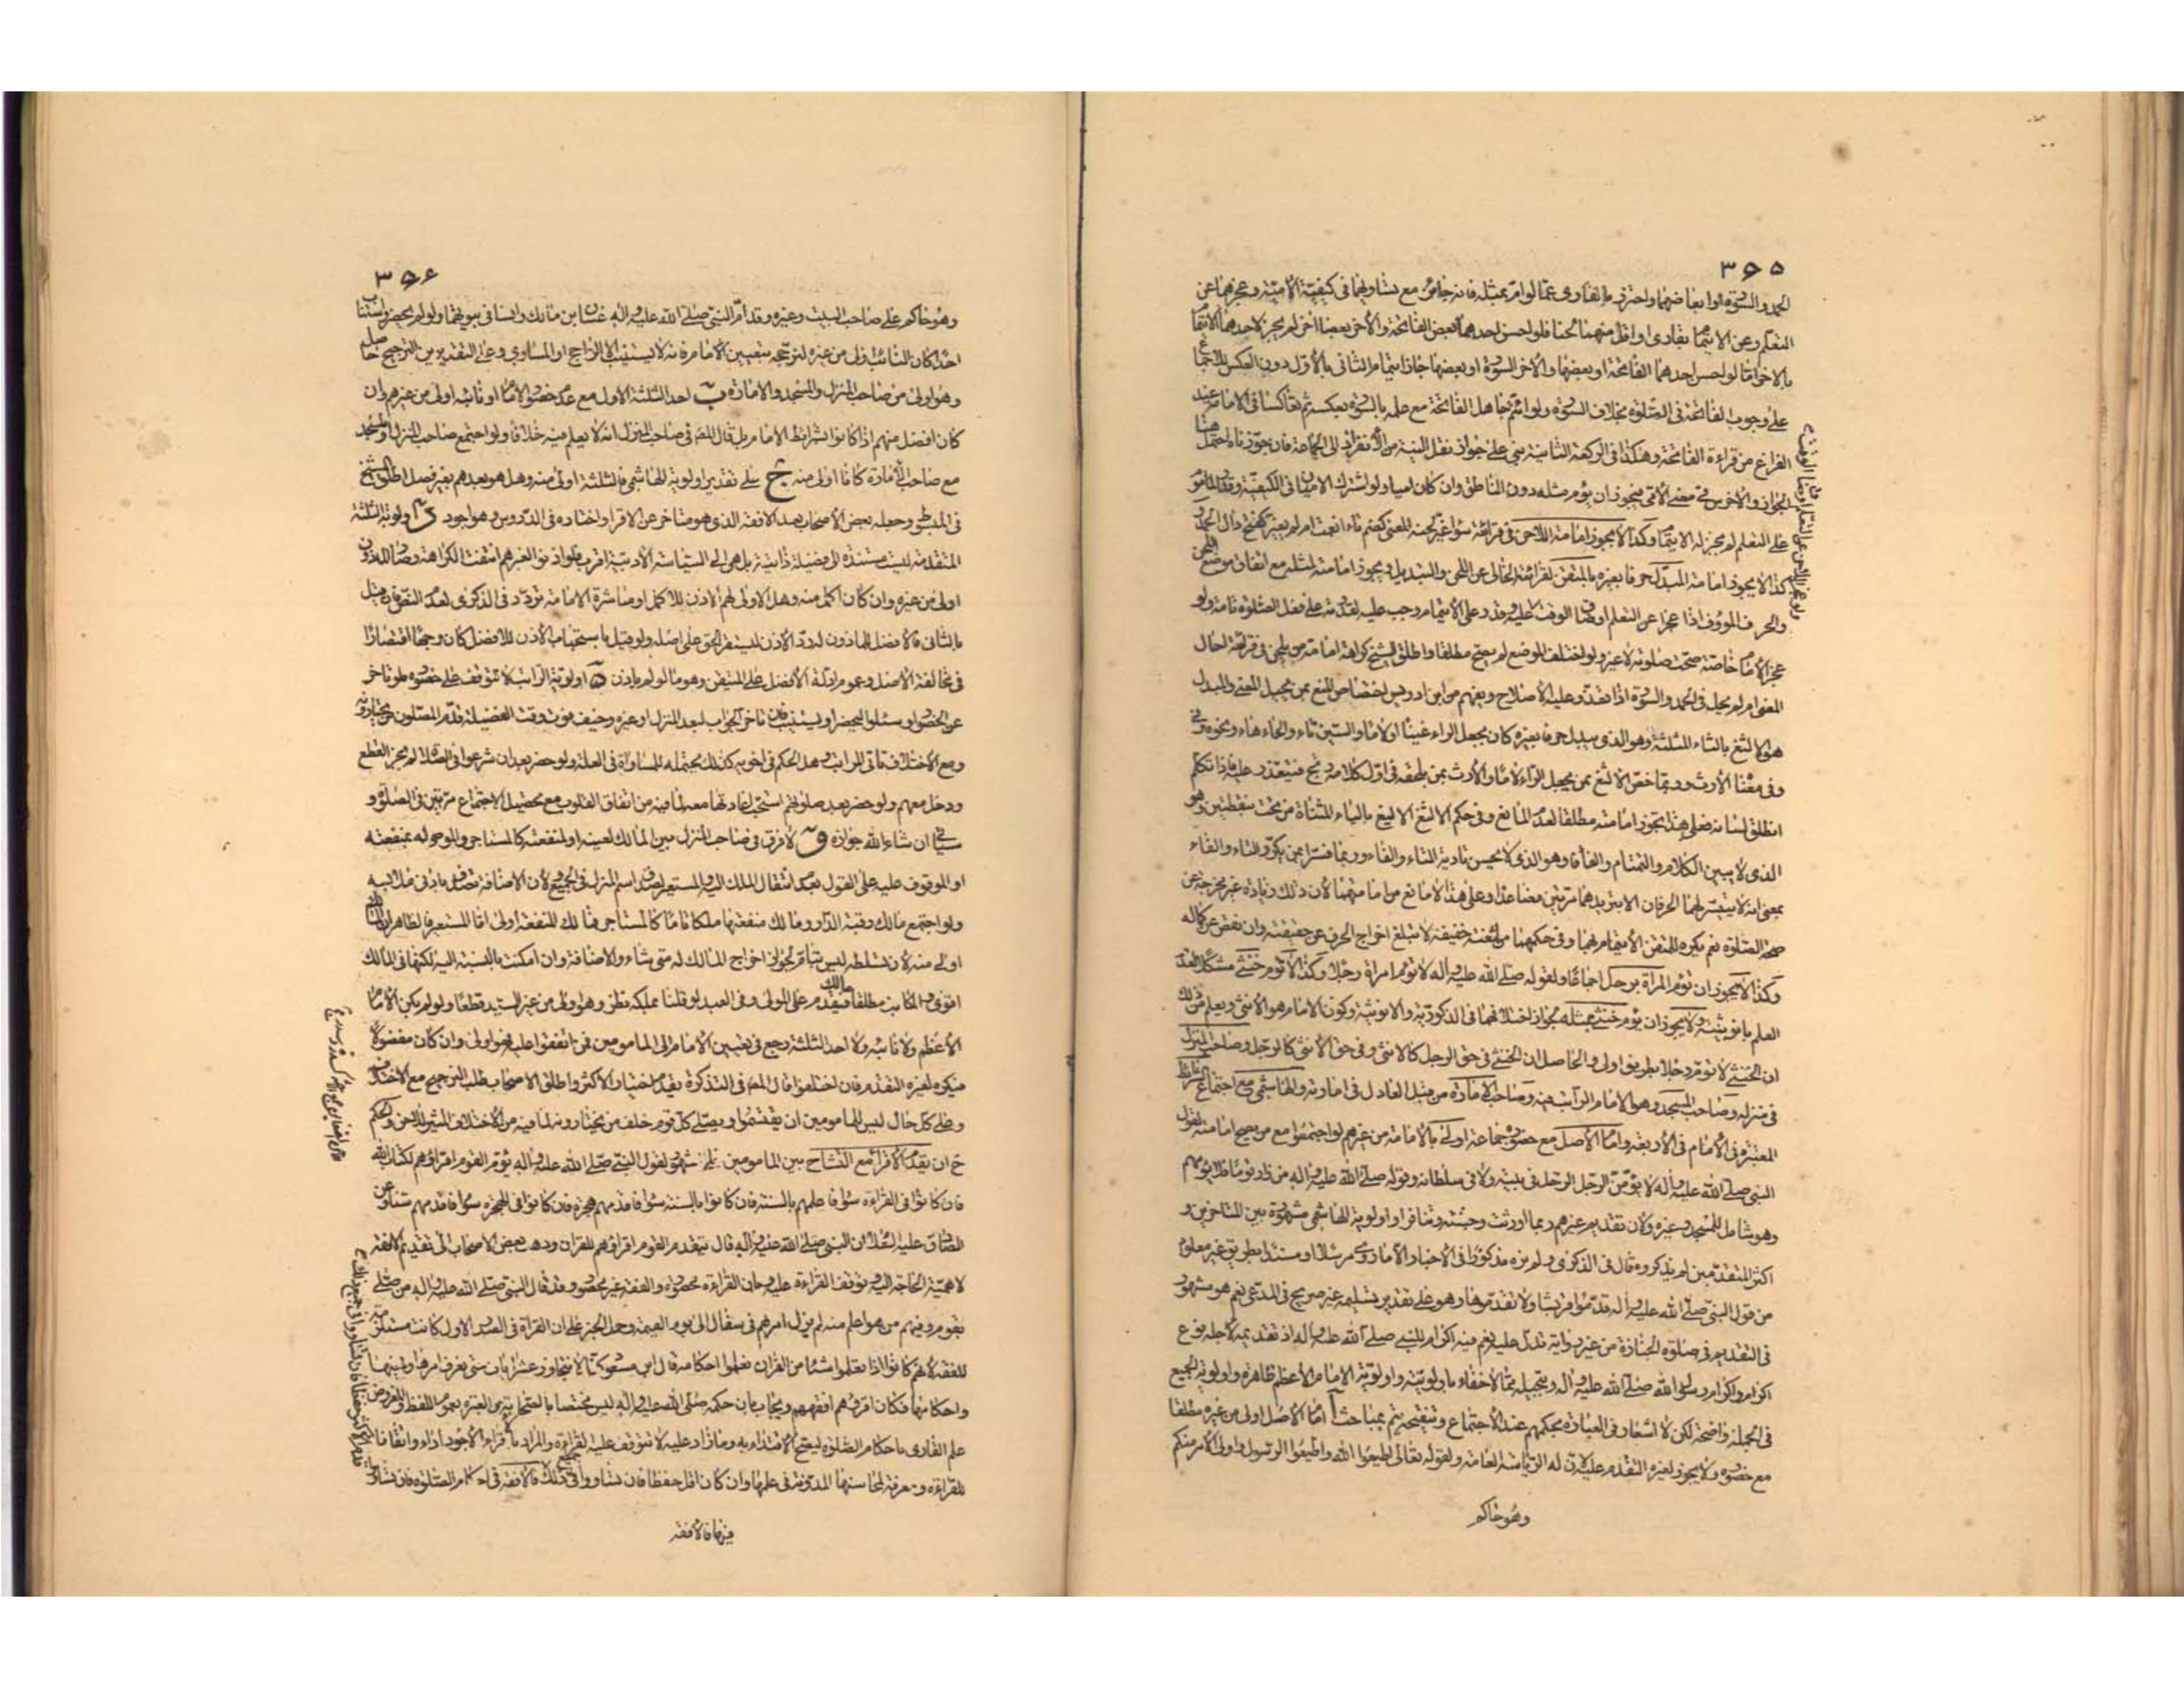 ٣٦٥
الحمد والسورة او ابعاضهما واحترز بالقارى عما لو ام بمثله فانه جائز مع تساويهما فى كيفية الامية وعجزهما عن
التعلم وعن الايتمام بقارى او اقل منهما لحنا فلو احسن احدهما بعض الفاتحة والاخر بعضا اخر لم يجز لاحدهما الايتمام
بالاخر اما لو احسن احدهما الفاتحة او بعضها والاخر السورة او بعضها جاز ايتمام الثانى بالاول دون العكس للاجماع
على وجوب الفاتحة فى الصلوة بخلاف السورة ولو ائتم جاهل الفاتحة مع علمه بالسورة بعكسه ثم تعاكسا فى الامامة عند
الفراغ من قراءة الفاتحة وهكذا فى الركعة الثانية بنى على جواز نقل النية من الانفراد الى الجماعة فان جوزناه احتمل هنا
الجواز والاخرس فى معنى الامى فيجوز ان يؤم مثله دون الناطق وان كان اميا ولو اشترك الاميان فى الكيفية وقدر الماموم
على التعلم لم يجز له الايتمام وكذا لا يجوز امامة اللاحن فى قرائته سواء غير لحنه المعنى كضم تاء انعمت ام لم يغير كفتح دال الحمد و
كذا لا يجوز امامة المبدل حرفا بغيره بالمتقن لقرائته الخالى عن اللحن والتبديل ويجوز امامته لمثله مع اتفاق موضع اللحن
والحرف المؤوف اذا عجزا عن التعلم او ضاق الوقت عليه وقدر على الايتمام وجب عليه لقدرته على فعل الصلوة تامة ولو
عجز الامام خاصة صحت صلوته لا غير ولو اختلف الموضع لم يصح مطلقا واطلق الشيخ كراهة امامة من يلحن فى قرائته احال
المعنى ام لم يحل فى الحمد والسورة اذا تعذر عليه الاصلاح ويفهم من ابن ادريس اختصاص المنع بمن يحيل المعنى والمبدل
هو الالثغ بالثاء المثلثة وهو الذى يبدل حرفا بغيره كان يجعل الراء غينا او لاما والسين ثاء والحاء هاء ونحوه و
وفى معناه الارت وربما خص الالثغ بمن يجعل الراء لاما والارت بمن يلحقه فى اول كلامه ريح فيتعذر عليه فاذا تكلم
انطلق لسانه فعلى هذا تجوز امامته مطلقا لعدم المانع وفى حكم الالثغ الاليغ بالياء المثناة من تحت بنقطتين وهو
الذى لا يبين الكلام والتمتام والفأفا وهو الذى لا يحسن تادية التاء والفاء وربما فسرا بمن يكرر التاء والفاء
بمعنى انه لا يتيسر لهما الحرفان الا بترديدهما مرتين فصاعدا وعلى هذا لا مانع من امامتهما لان ذلك زيادة غير مخرجة عن
صحة الصلوة نعم يكره للمتقن الايتمام بهما وفى حكمهما من لثغته خفيفة لا تبلغ اخراج الحرف عن حقيقته وان نقص عن كماله
وكذا لا يجوز ان تؤم المراة برجل اجماعا ولقوله صلى الله عليه واله لا تؤم امراة رجلا وكذا لا تؤم خنثى مشكلا لعدم
العلم بانوثيته ولا يجوز ان يؤم خنثى بمثله لجواز اختلافهما فى الذكورية والانوثية وكون الامام هو الانثى ويعلم من ذلك
ان الخنثى لا تؤم رجلا بطريق اولى والحاصل ان الخنثى فى حق الرجل كالانثى وفى حق الانثى كالرجل وصاحب المنزل
فى منزله وصاحب المسجد وهو الامام الراتب فيه وصاحب الامارة من قبل العادل فى امارته والهاشمى مع اجتماع شرائط
المعتبرة فى الامام فى الاربعة وامام الاصل مع حضوره جماعة اولى بالامامة من غيرهم لو اجتمعوا مع من يصح امامته لقول
النبى صلى الله عليه واله لا يؤمن الرجل الرجل فى بيته ولا فى سلطانه وقوله صلى الله عليه واله من زار قوما فلا يؤمهم
وهو شامل للمسجد وغيره ولان تقديم غيرهم ربما اورثت وحشة وتنافرا واولوية الهاشمى مشهورة بين المتاخرين و
اكثر المتقدمين لم يذكروه قال فى الذكرى ولم نره مذكورا فى الاخبار الا ما روى مرسلا او مسندا بطريق غير معلوم
من قول النبى صلى الله عليه واله قدموا قريشا ولا تقدموها وهو على تقدير تسليمه غير صريح فى المدعى نعم هو مشهور
فى التقديم فى صلوة الجنازة من غير رواية تدل عليه نعم فيه اكرام للنبى صلى الله عليه واله اذ تقديمه لاجله نوع
اكرام واكرام رسول الله صلى الله عليه واله وتبجيله مما لا خفاء باولويته واولوية الامام الاعظم ظاهرة واولوية الجميع
فى الجملة واضحة لكن لا اشعار فى العبارة بحكمهم عند الاجتماع وتنقيحه يتم بمباحث آ امام الاصل اولى من غيره مطلقا
مع حضوره ولا يجوز لغيره التقدم عليه لان له الرياسة العامة ولقوله تعالى اطيعوا الله واطيعوا الرسول واولى الامر منكم
وهو حاكم
٣٦٦
وهو حاكم على صاحب البيت وغيره وقد ام النبى صلى الله عليه واله عتبان بن مالك وانسا فى بيوتهما ولو لم يحضر واستناب
احدا كان النائب اولى من غيره لترجحه بتعيين الامام فانه لا يستنيب الا الراجح او المساوى وعلى التقديرين الترجيح حاصل
وهو اولى من صاحب المنزل والمسجد والامارة ب احد الثلثة الاول مع عدم حضور الامام او نائبه اولى من غيرهم وان
كان افضل منهم اذا كانوا بشرائط الامام بل قال المص فى صاحب المنزل انه لا يعلم فيه خلافا ولو اجتمع صاحب المنزل والمسجد
مع صاحب الامارة كانا اولى منه ج على تقدير اولوية الهاشمى فالثلثة اولى منه وهل هو بعدهم بغير فصل اطلق الشيخ
فى المبسوط وجعله بعض الاصحاب بعد الافقه الذى هو متاخر عن الاقرا واختاره فى الدروس وهو اجود د اولوية الثلثة
المتقدمة ليست مستندة الى فضيلة ذاتية بل هى الى السياسة الادبية اقرب فلو اذنوا لغيرهم انتفت الكراهة وصار الماذون
اولى من غيره وان كان اكمل منه وهل الاولى لهم الاذن للاكمل او مباشرة الامامة تردد فى الذكرى لعدم النص فان قيل
بالثانى فالافضل للماذون له رد الاذن ليستقر الحق على اصله ولو قيل باستحباب الاذن للافضل كان وجها اقتصارا
فى مخالفة الاصل وعموم ادلة الافضل على المتيقن وهو ما لو لم ياذن ه اولوية الراتب لا تتوقف على حضوره فلو تاخر
عن الحضور ارسل اليه ليحضر او يستنيب فان تاخر الجواب لبعد المنزل او غيره وخيف فوت وقت الفضيلة قدم المصلون من يختارونه
ومع الاختلاف ياتى المراتب وهل الحكم فى اخويه كذلك يحتمله للمساواة فى العلة ولو حضر بعد ان شرعوا فى الصلوة لم يجز القطع
ودخل معهم ولو حضر بعد صلوتهم استحب اعادتها معه لما فيه من اتفاق القلوب مع تحصيل الاجتماع مرتين فى الصلوة و
سياتى ان شاء الله جوازه و لا فرق فى صاحب المنزل بين المالك لعينه او لمنفعته كالمستاجر والموصى له بمنفعته
او الموقوف عليه على القول بعدم انتقال الملك اليه والمستعير لصدق اسم المنزل فى الجميع لان الاضافة تصدق بادنى ملابسة
ولو اجتمع مالك رقبة الدار ومالك منفعتها ملكا تاما كالمستاجر فمالك المنفعة اولى اما المستعير فالظاهر ان المالك
اولى منه لان تسلطه ليس بتام لجواز اخراج المالك له متى شاء والاضافة وان امكنت بالنسبة اليه لكنها فى المالك
اقوى والمكاتب مطلقا فيقدم على المولى وفى العبد لو قلنا بملكه نظر وهو اولى من غير السيد قطعا ولو لم يكن الامام
الاعظم ولا نائبه ولا احد الثلثة رجع فى تعيين الامام الى المامومين فمن اتفقوا عليه فهو اولى وان كان مفضولا
فيكره لغيره التقدم فان اختلفوا قال المص فى التذكرة يقدم اختيار الاكثر واطلق الاصحاب طلب الترجيح مع الاختلاف
وعلى كل حال ليس للمامومين ان يقتسموا ويصلى كل قوم خلف من يختارونه لما فيه من الاختلاف المثير للاحن والحكم
ح ان يقدم الاقرا مع التشاح بين المامومين على المشهور لقول النبى صلى الله عليه واله يؤم القوم اقراؤهم لكتاب الله
فان كانوا فى القراءة سواء فاعلمهم بالسنة فان كانوا بالسنة سواء فاقدمهم هجرة فان كانوا فى الهجرة سواء فاقدمهم سنا وعن
الصادق عليه السلام ان النبى صلى الله عليه واله قال يتقدم القوم اقراؤهم للقران وذهب بعض الاصحاب الى تقديم الافقه
لاهمية الحاجة اليه وتوقف القراءة عليه ولان القراءة محصورة والفقه غير محصور وقد قال النبى صلى الله عليه واله من صلى
بقوم وفيهم من هو اعلم منه لم يزل امرهم فى سفال الى يوم القيمة وحمل الخبر على ان القراءة فى الصدر الاول كانت مستلزمة
للفقه لانهم كانوا اذا تعلموا شيئا من القران تعلموا احكامه قال ابن مسعود كنا لا نتجاوز عشر ايات حتى نعرف امرها ونهيها
واحكامها فكان اقراهم افقههم ويجاب بان حكمه صلى الله عليه واله ليس مختصا بالصحابة بل العبرة بعموم اللفظ والمفروض
علم القارى باحكام الصلوة ليصح الاقتداء به وما زاد عليه لا تتوقف عليه القراءة والمراد بالاقراء الاجود اداء واتقانا
للقراءة ومعرفة لمحاسنها المدونة فى علمها وان كان اقل حفظا فان تساووا فى ذلك فالافقه فى احكام الصلوة فان تساووا
فيها فالافقه